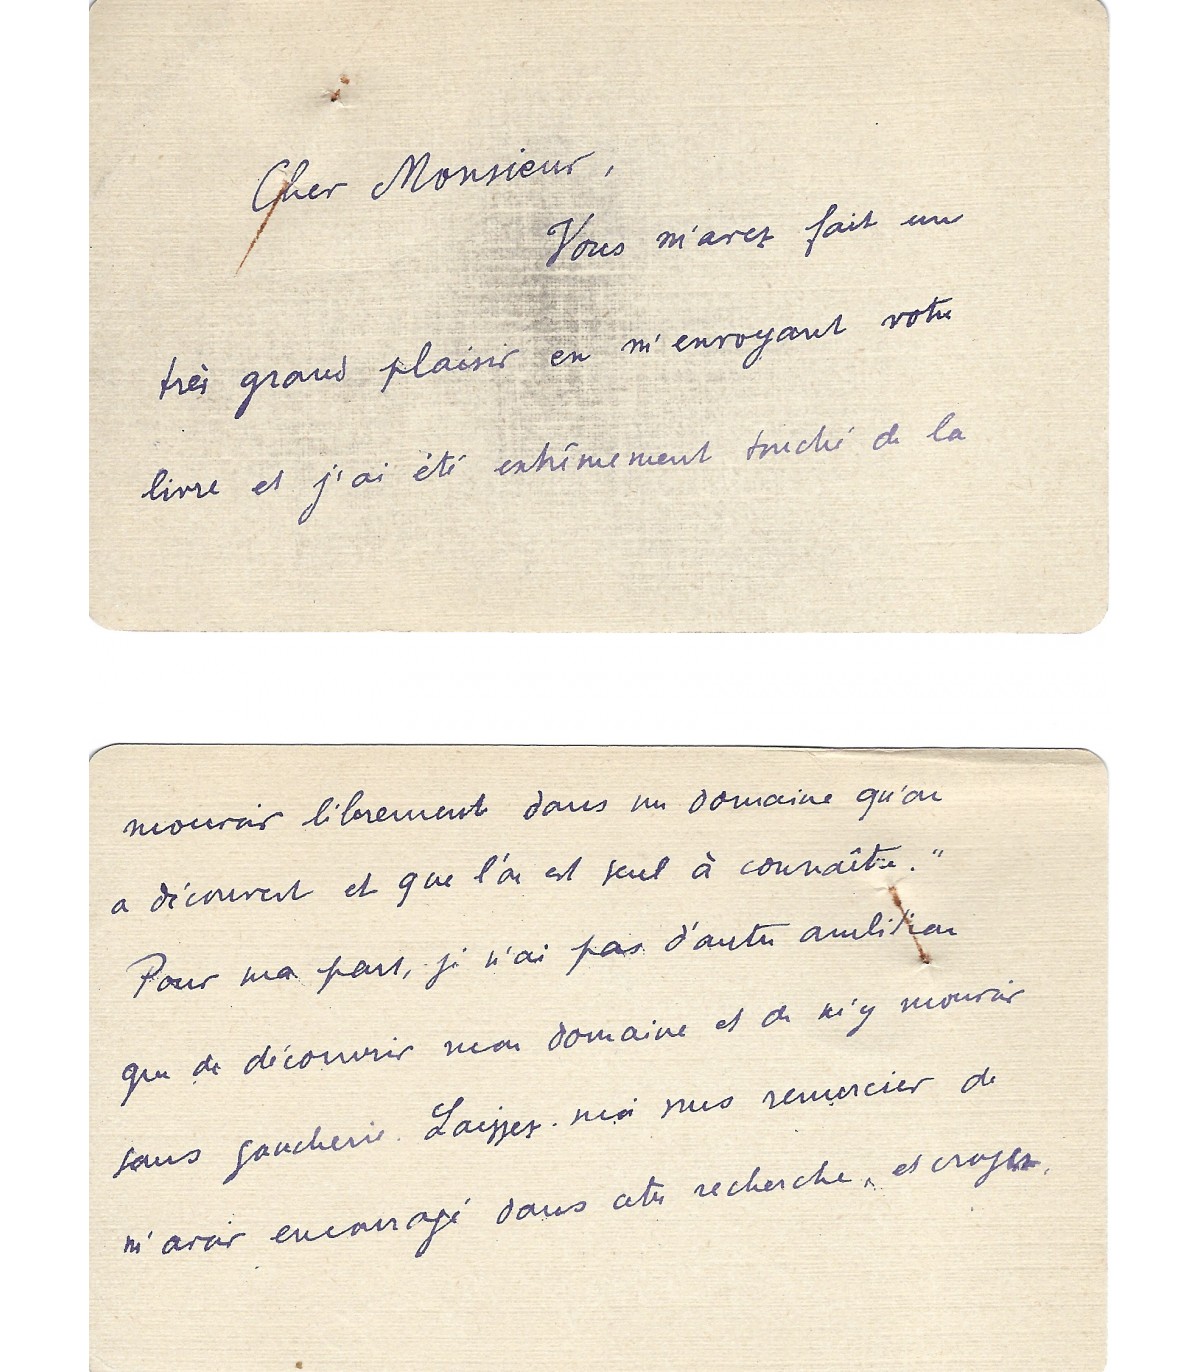 Cher Monsieur,
Vous m'avez fait un
très grand plaisir en m'envoyant votre
livre et j'ai été extrêmement touché de la
mourir librement dans un domaine qu'on
a découvert et que l'on est seul à connaître."
Pour ma part, je n'ai pas d'autre ambition
que de découvrir mon domaine et de m'y mourir
sans gaucherie. Laissez-moi vous remercier de
m'avoir encouragé dans cette recherche, et croyez,